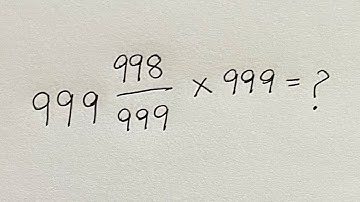 999 998/999 × 999 = ?